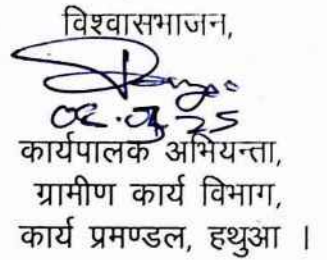 विश्वासभाजन,
कार्यपालक अभियन्ता,
ग्रामीण कार्य विभाग,
कार्य प्रमण्डल, हथुआ ।